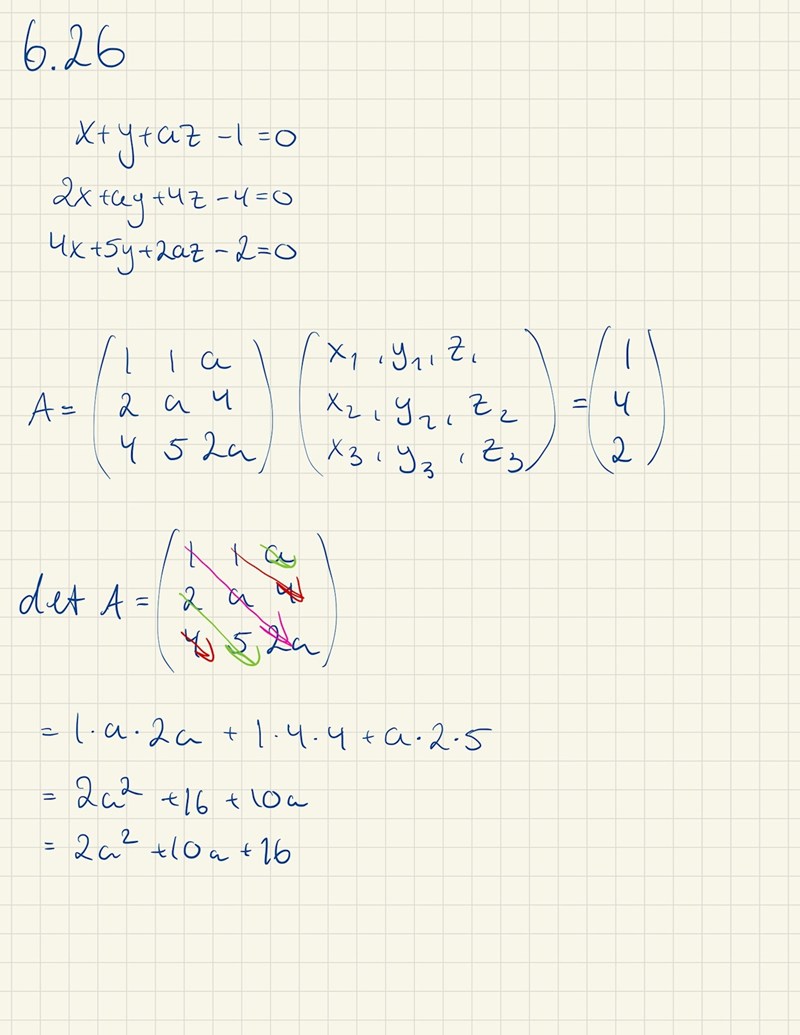 6.26
x+y+az-1=0
2x+ay+4z-4=0
4x+5y+2az-2=0
A= (1 1 a) (x₁, y₁, z₁) = (1)
(2 a 4) (x₂, y₂, z₂) (4)
(4 5 2a) (x₃, y₃, z₃) (2)
det A = (1 1 a)
(2 a 4)
(4 5 2a)
= 1·a·2a + 1·4·4 + a·2·5
= 2a² +16 +10a
= 2a² +10a +16